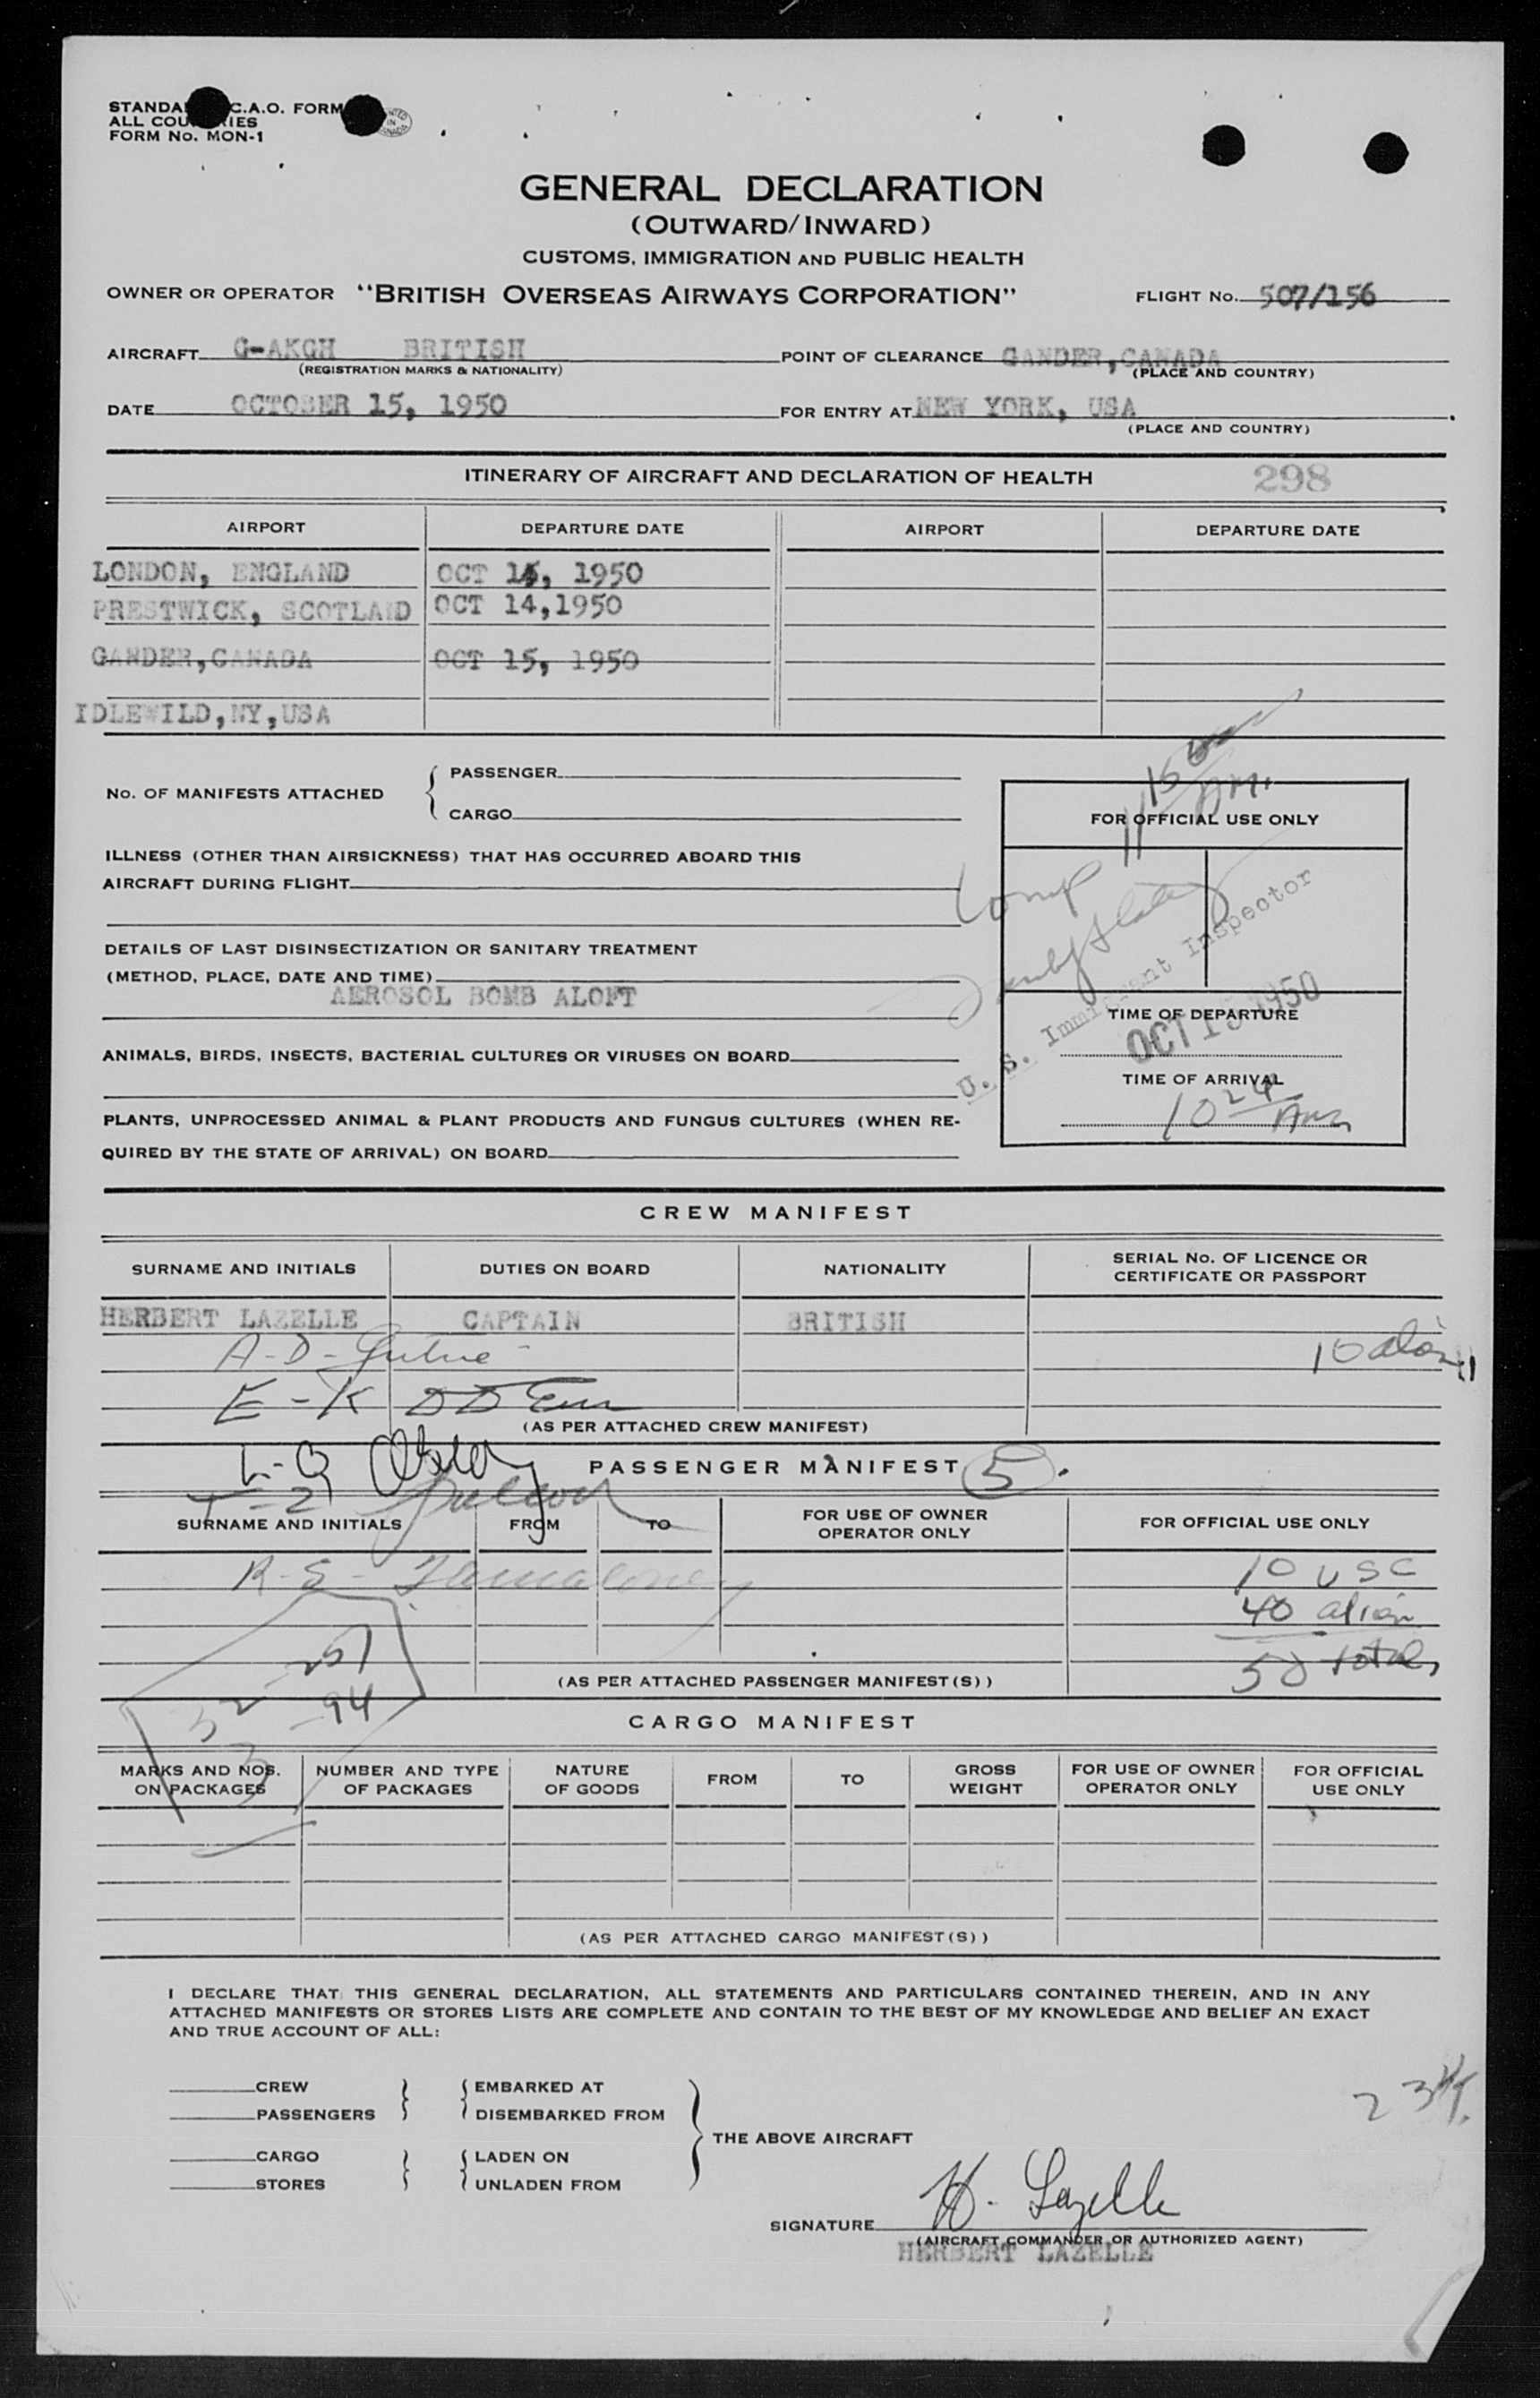 STANDA C.A.O. FORM
ALL COU RIES
FORM No. MON-1
PRINTED IN CANADA
GENERAL DECLARATION
(OUTWARD/INWARD)
CUSTOMS, IMMIGRATION AND PUBLIC HEALTH
OWNER OR OPERATOR "BRITISH OVERSEAS AIRWAYS CORPORATION" FLIGHT No. 507/156
AIRCRAFT G-AKGH BRITISH POINT OF CLEARANCE GANDER, CANADA
(REGISTRATION MARKS & NATIONALITY) (PLACE AND COUNTRY)
DATE OCTOBER 15, 1950 FOR ENTRY AT NEW YORK, USA
(PLACE AND COUNTRY)
ITINERARY OF AIRCRAFT AND DECLARATION OF HEALTH 298
AIRPORT DEPARTURE DATE AIRPORT DEPARTURE DATE
LONDON, ENGLAND OCT 14, 1950
PRESTWICK, SCOTLAND OCT 14,1950
GANDER,CANADA OCT 15, 1950
IDLEWILD,NY,USA
No. OF MANIFESTS ATTACHED { PASSENGER
CARGO
FOR OFFICIAL USE ONLY
ILLNESS (OTHER THAN AIRSICKNESS) THAT HAS OCCURRED ABOARD THIS
AIRCRAFT DURING FLIGHT
DETAILS OF LAST DISINSECTIZATION OR SANITARY TREATMENT
(METHOD, PLACE, DATE AND TIME)
AEROSOL BOMB ALOFT
U. S. Immigrant Inspector
TIME OF DEPARTURE
OCT 15 1950
ANIMALS, BIRDS, INSECTS, BACTERIAL CULTURES OR VIRUSES ON BOARD
TIME OF ARRIVAL
10 24 Am
PLANTS, UNPROCESSED ANIMAL & PLANT PRODUCTS AND FUNGUS CULTURES (WHEN RE-
QUIRED BY THE STATE OF ARRIVAL) ON BOARD
CREW MANIFEST
SURNAME AND INITIALS DUTIES ON BOARD NATIONALITY SERIAL No. OF LICENCE OR
CERTIFICATE OR PASSPORT
HERBERT LAZELLE CAPTAIN BRITISH
A-D-
10 alien
E-K
(AS PER ATTACHED CREW MANIFEST)
L-Q
PASSENGER MANIFEST 5
SURNAME AND INITIALS FROM TO FOR USE OF OWNER
OPERATOR ONLY FOR OFFICIAL USE ONLY
R-S-
10 USC
40 alien
50 total
(AS PER ATTACHED PASSENGER MANIFEST(S))
-94
CARGO MANIFEST
MARKS AND NOS.
ON PACKAGES NUMBER AND TYPE
OF PACKAGES NATURE
OF GOODS FROM TO GROSS
WEIGHT FOR USE OF OWNER
OPERATOR ONLY FOR OFFICIAL
USE ONLY
(AS PER ATTACHED CARGO MANIFEST(S))
I DECLARE THAT THIS GENERAL DECLARATION, ALL STATEMENTS AND PARTICULARS CONTAINED THEREIN, AND IN ANY
ATTACHED MANIFESTS OR STORES LISTS ARE COMPLETE AND CONTAIN TO THE BEST OF MY KNOWLEDGE AND BELIEF AN EXACT
AND TRUE ACCOUNT OF ALL:
CREW EMBARKED AT
PASSENGERS DISEMBARKED FROM
THE ABOVE AIRCRAFT
CARGO LADEN ON
STORES UNLADEN FROM
SIGNATURE H. Lazelle
(AIRCRAFT COMMANDER OR AUTHORIZED AGENT)
HERBERT LAZELLE